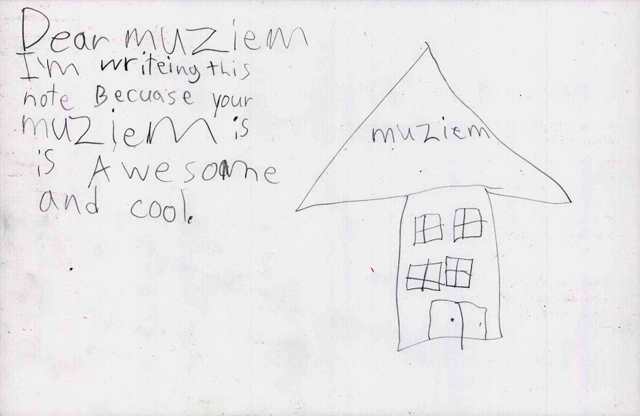 Dear muziem
I'm writeing this
note Becuase your
muziem is
is Awesome
and cool.
muziem